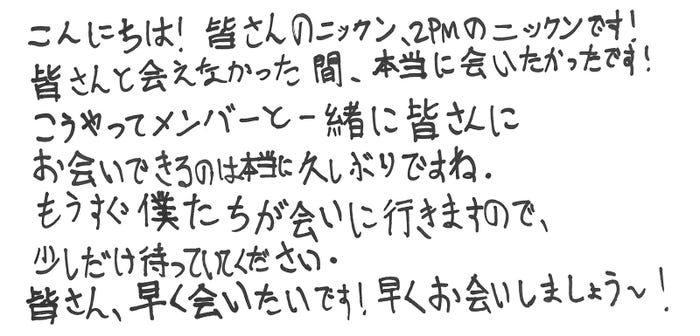 こんにちは！皆さんのニックン、2PMのニックンです！
皆さんと会えなかった間、本当に会いたかったです！
こうやってメンバーと一緒に皆さんに
お会いできるのは本当に久しぶりですね.
もうすぐ僕たちが会いに行きますので、
少しだけ待っていてください.
皆さん、早く会いたいです！早くお会いしましょう〜！